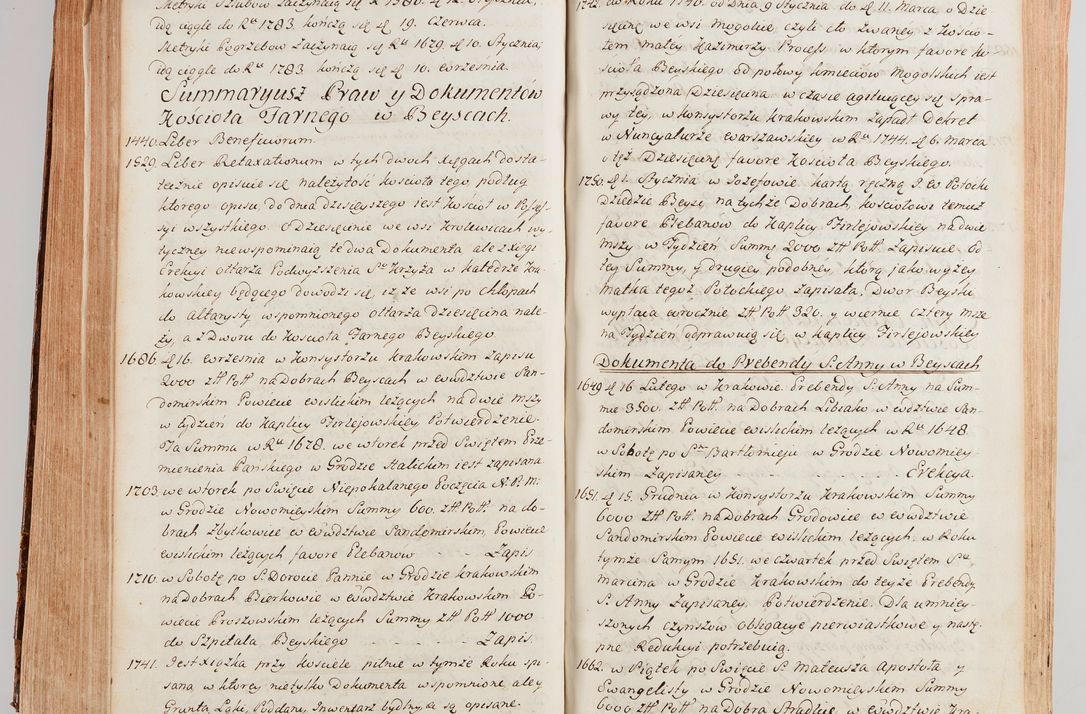 Metryki Szlubow zaczynaią się R. 1586. d. 12. Stycznia,
idą ciągle do Ru 1783 kończą się d. 19. Czerwca.
Metryki Pogrzebow zaczynaią się Ru 1679. d. 10. Stycznia,
idą ciągle do Ru 1783. kończą się d. 10. września.
Summaryusz Praw y Dokumentów
Kościoła Farnego w Beyscach.
1440. Liber Beneficiorum.
1529. Liber Retaxationum w tych dwoch xięgach dosta-
tecznie opisuie się należytość kościoła tego, podług
ktorego opisu, do dnia dzisieyszego iest kościoł w Posses-
syi wszystkiego. O Dziesięcinie we wsi Krolewicach wy-
tyczney niewspominaią te dwa Dokumenta ale z xięgi
Erekcyi ołtarza Podwyższenia So Krzyża w Katedrze Kra-
kowskiey będącego dowodzi się, iż ze wsi po Chłopach
do Altarysty wspomnionego ołtarza dziesięcina nale-
ży, a z Dworu do Kościoła Farnego Beyskiego
1686. d. 16. września w Konsystorzu krakowskim zapisu
2000 zł. Pol. na Dobrach Beyscach w wodztwie San-
domirskim Powiecie wislickim leżących na dwie mszy
w tydzień do Kaplicy Firlejowskiey Potwierdzenie.
Ta Summa w Ru 1678. we wtorek przed Swiętem Prze-
mienienia Pańskiego w Grodzie Halickim iest zapisana
1703 we wtorek po Swięcie Niepokalanego Poczęcia N. P. M:
w Grodzie Nowomieyskim Summy 600. zł. Pol. na do-
brach Zbyłkowie w wwdztwie Sandomirskim, Powiecie
wislickim leżących favore Plebanow - - - Zapis
1710. w Sobotę po S. Dorocie Pannie w Grodzie krakowskim
na Dobrach Bierkowie w wwdztwie Krakowskim Po-
wiecie Proszowskim leżących Summy zł. Pol. 1000
do Szpitala Beyskiego - - - Zapis.
1741. Jest xiążka przy kosciele pilnie w tymże Roku spi-
sana w ktorey nietylko Dokumenta wspomnione, ale y
Grunta Łąki, Poddani, Inwentarz bydlny, etc są opisane.
1742. do Roku 1746. od dnia 9 Stycznia do d. 11. Marca o Dzie-
sięcinę we wsi Mogolie czyli cło zwaney z kościo-
łem małey Kazimierzy Process w ktorym favore Ko-
scioła Beyskiego od połowy kmieciow Mogolskich iest
przysądzona Dziesięcina w czasie agituiącey się spra-
wy tey, w konsystorzu krakowskim zapadł Dekret
w Nuncyaturze warszawskiey w Ru 1744. d. 6. marca
o też Dziesięcinę favore Koscioła Beyskiego.
1750. d. 2. Stycznia w Jozefowie kartą ręczną J. W Potocki
Dziedzic Beysc na tychże Dobrach, kościołowi temuż
favore Plebanów do Kaplicy Firlejowskiey na dwie
mszy w Tydzień Summy 2000 zł. Pol. Zapisuie. Od
tey Summy, y drugiey podobney którą iako wyżey
matka tegoż Potockiego zapisała, Dwor Beyski
wypłaca corocznie zł. Pol. 320. y wiernie cztery msze
na Tydzien odprawuią się w kaplicy Firlejowskiey
Dokumenta do Prebendy S. Anny w Beyscach
1649 d. 16 Lutego w Krakowie. Prebendy S. Anny na Sum-
mie 3500. zł. Pol. na Dobrach Libsako w wdztwie San-
domirskim Powiecie wislickim leżących w Ru 1648.
w Sobotę po Sm Bartłomieju w Grodzie Nowomiey-
skim Zapisaney - - - - Erekcya.
1651. d. 15. Grudnia w Konsystorzu Krakowskim Summy
6000 zł. Pol. na Dobrach Grodowice w wwdztwie
Sandomirskim Powiecie wislickim leżących, w Roku
tymże Samym 1651. we czwartek przed Swiętem So
Marcina w Grodzie Krakowskim do teyże Prebendy
S. Anny Zapisaney. Potwierdzenie. Dla umniey-
szonych czynszow obligacye pierwiastkowe y nastę-
pne Redukcyi potrzebuią.
1662. w Piątek po Swięcie S. Mateusza Apostoła y
Ewangelisty w Grodzie Nowomieyskim Summy
6000 zł. Pol. na Dobra Stradlice w wwdztwie Kra-